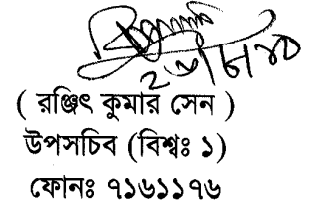 ( রঞ্জিৎ কুমার সেন )
উপসচিব (বিশ্বঃ ১)
ফোনঃ ৭১৬১১৭৬